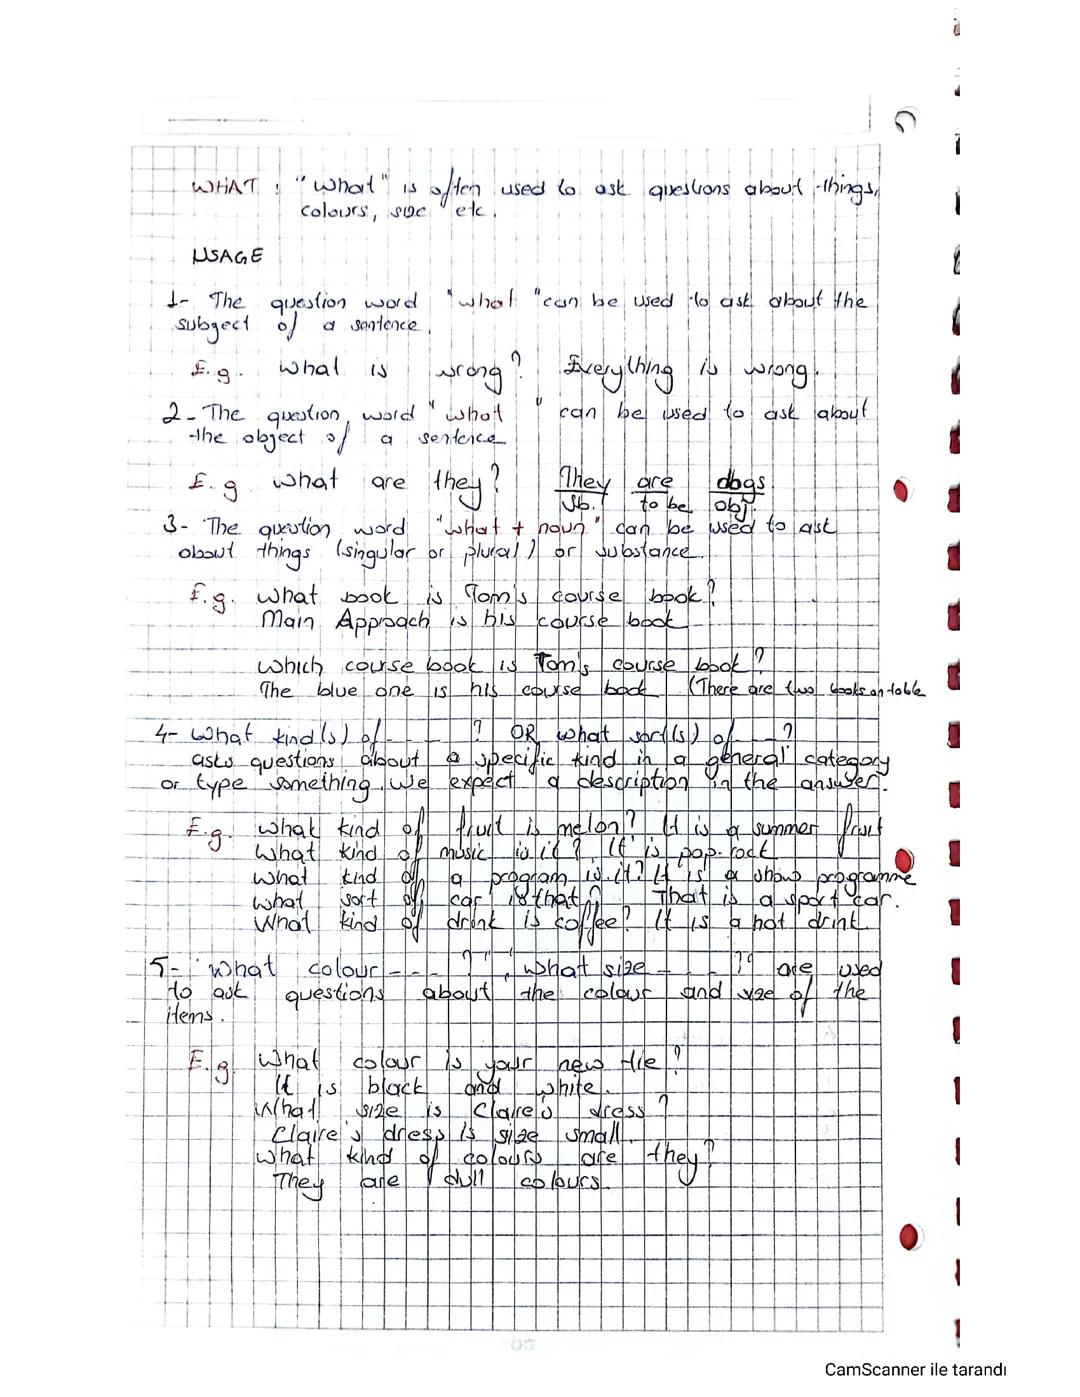 WHAT : "What" is often used to ask questions about things,
colours, size etc.
USAGE
1- The question word "what" can be used to ask about the
subgect of a sentence.
E.g. What is wrong? Everything is wrong.
2- The question word "what" can be used to ask about
the object of a sentence
E.g. What are they? They are dogs
Sb. to be obj.
3- The question word "what + noun" can be used to ask
about things (singular or plural) or substance.
E.g. What book is Tom's course book?
Main Approach is his course book
Which course book is Tom's course book?
The blue one is his course book (There are two books on table
4- What kind(s) of ----? OR what sort(s) of ----?
asks questions about a specific kind in a general category
or type something. We expect a description in the answer.
E.g. What kind of fruit is melon? It is a summer fruit
What kind of music is it? It is pop-rock
What kind of a program is it? It is a show programme
What sort of car is that? That is a sport car.
What kind of drink is coffee? It is a hot drink.
5- "What colour ----?", "What size ----?" are used
to ask questions about the colour and size of the
items.
E.g What colour is your new tie?
It is black and white.
What size is Claire's dress?
Claire's dress is size small.
What kind of colours are they?
They are dull colours.
CamScanner ile tarandı